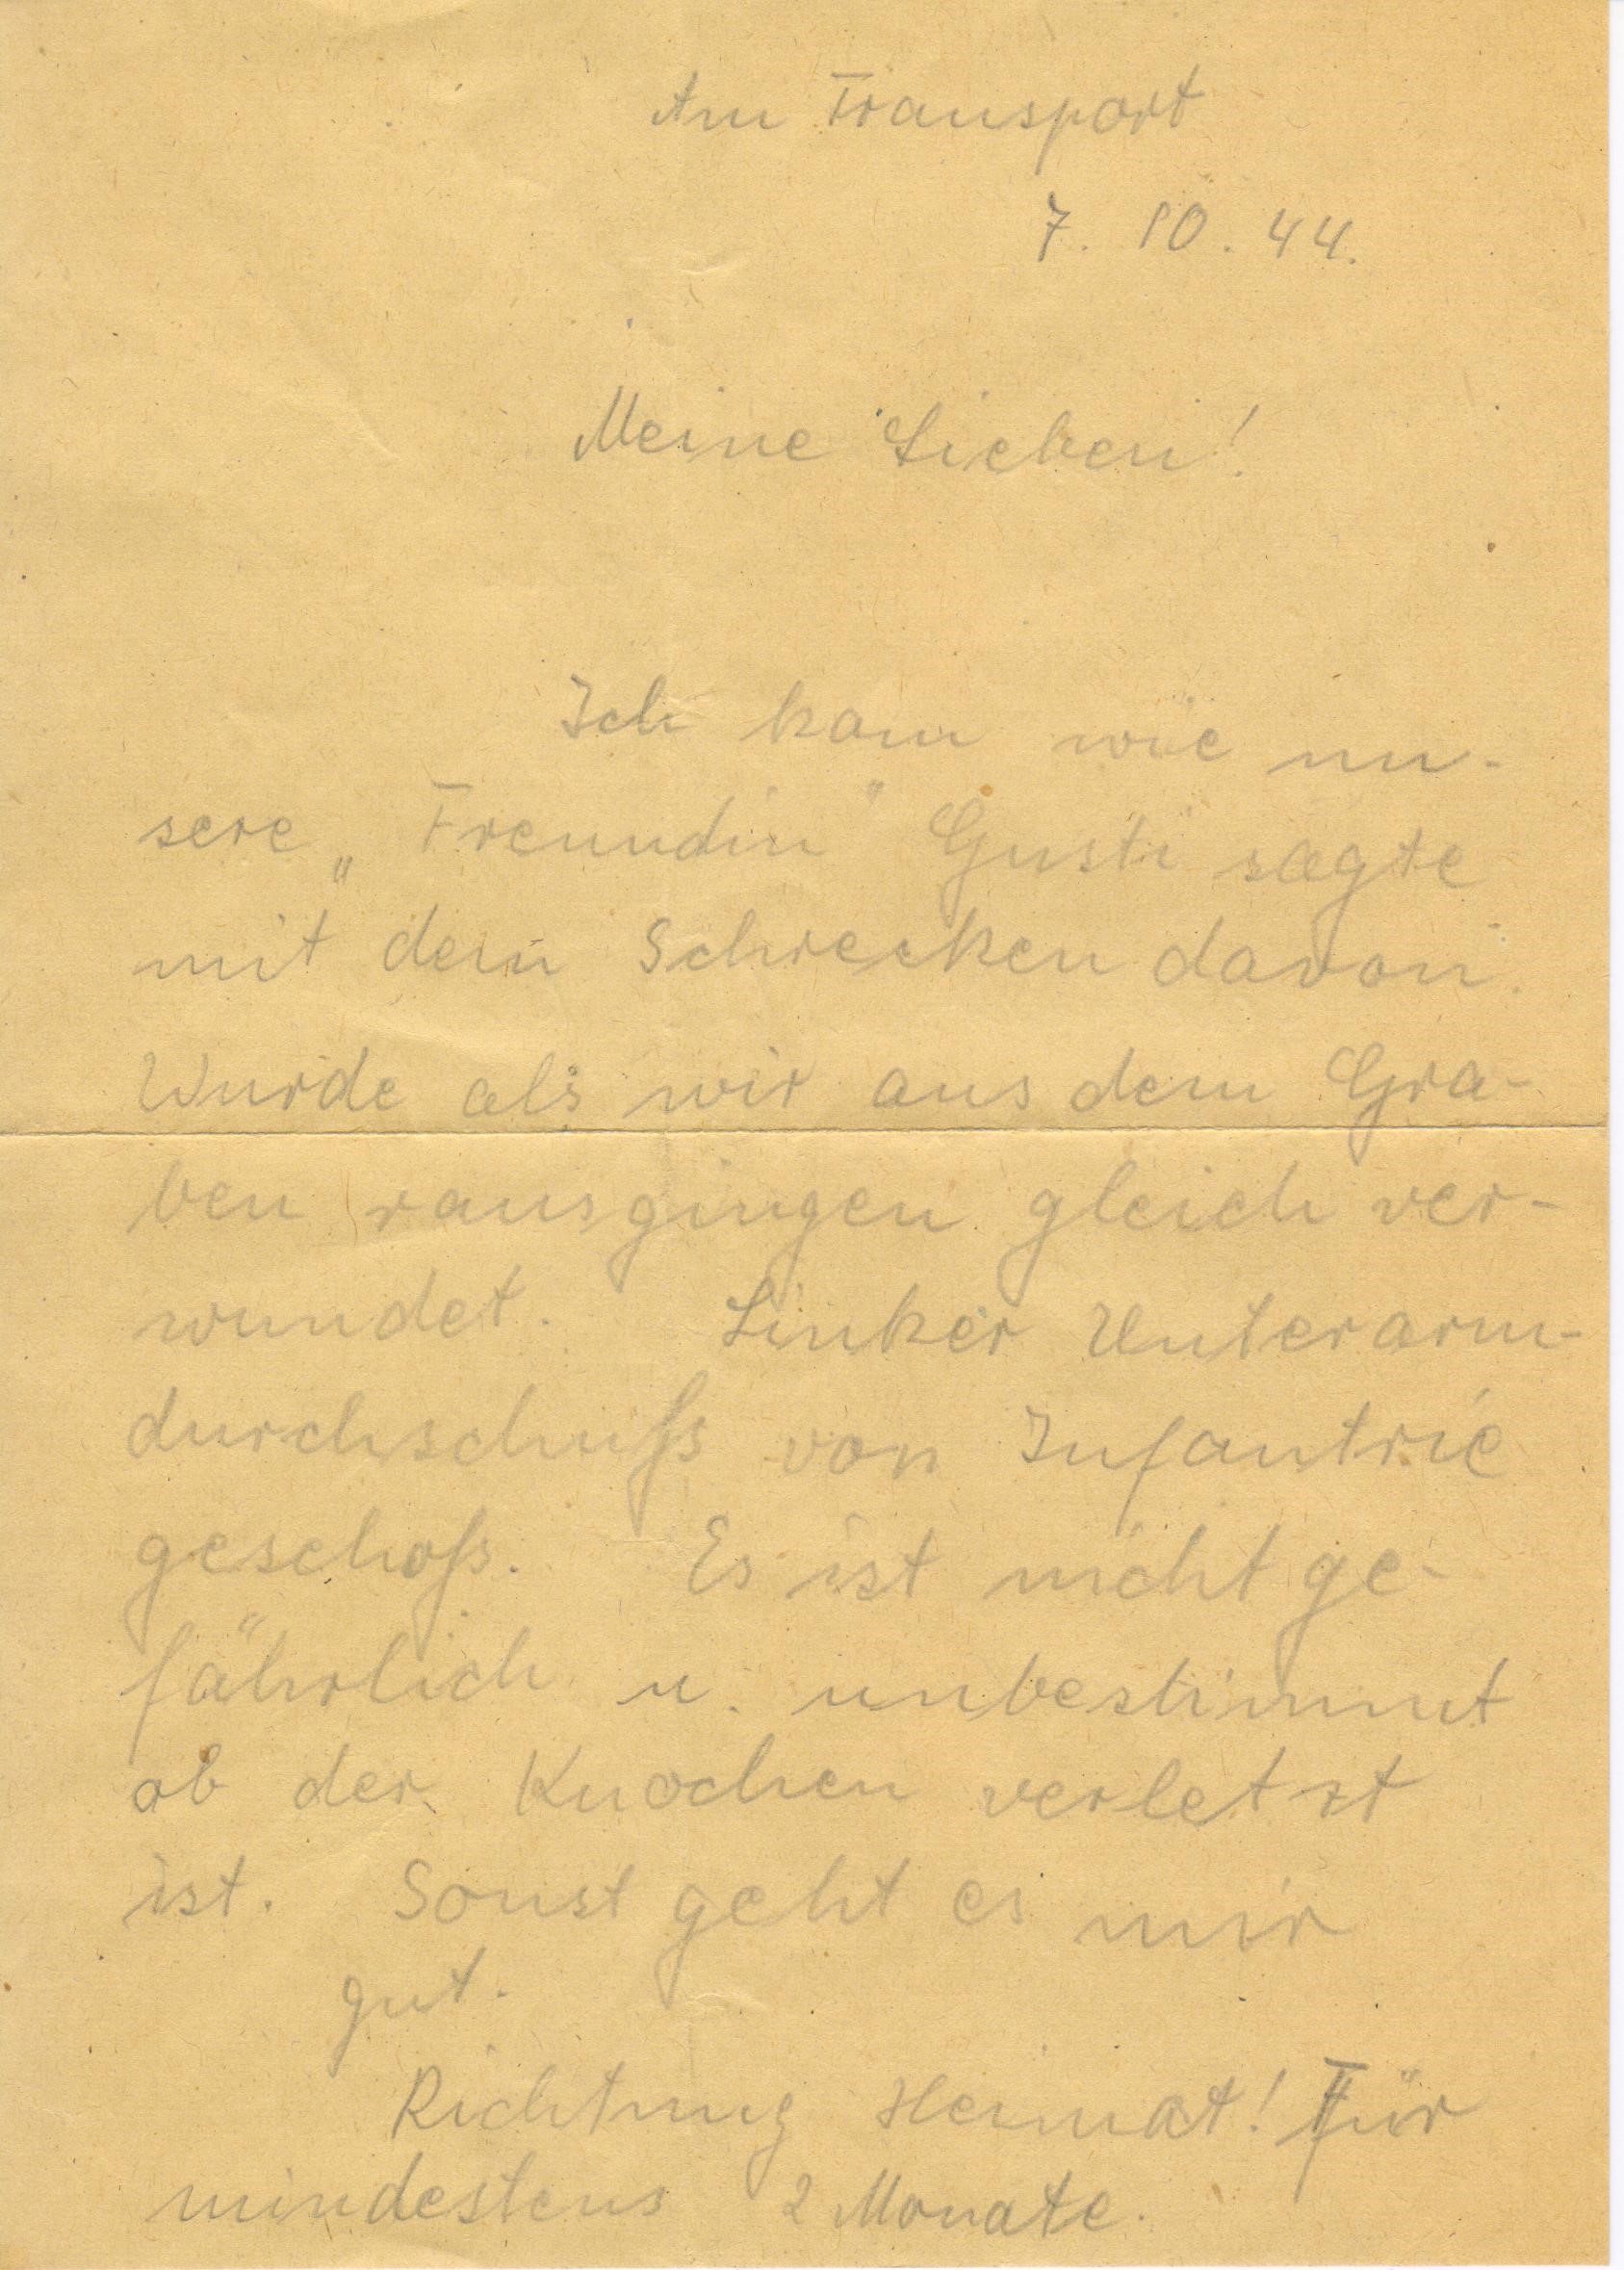 Am Transport
7. 10. 44.
Meine Lieben!
Ich kam wie un-
sere „Freundin" Gusti sagte
mit dem Schrecken davon.
Wurde als wir aus dem Gra-
ben rausgingen gleich ver-
wundet. Linker Unterarm-
durchschuß von Infantrie
geschoß. Es ist nicht ge-
fährlich u. unbestimmt
ob der Knochen verletzt
ist. Sonst geht es mir
gut.
Richtung Heimat! Für
mindestens 2 Monate.